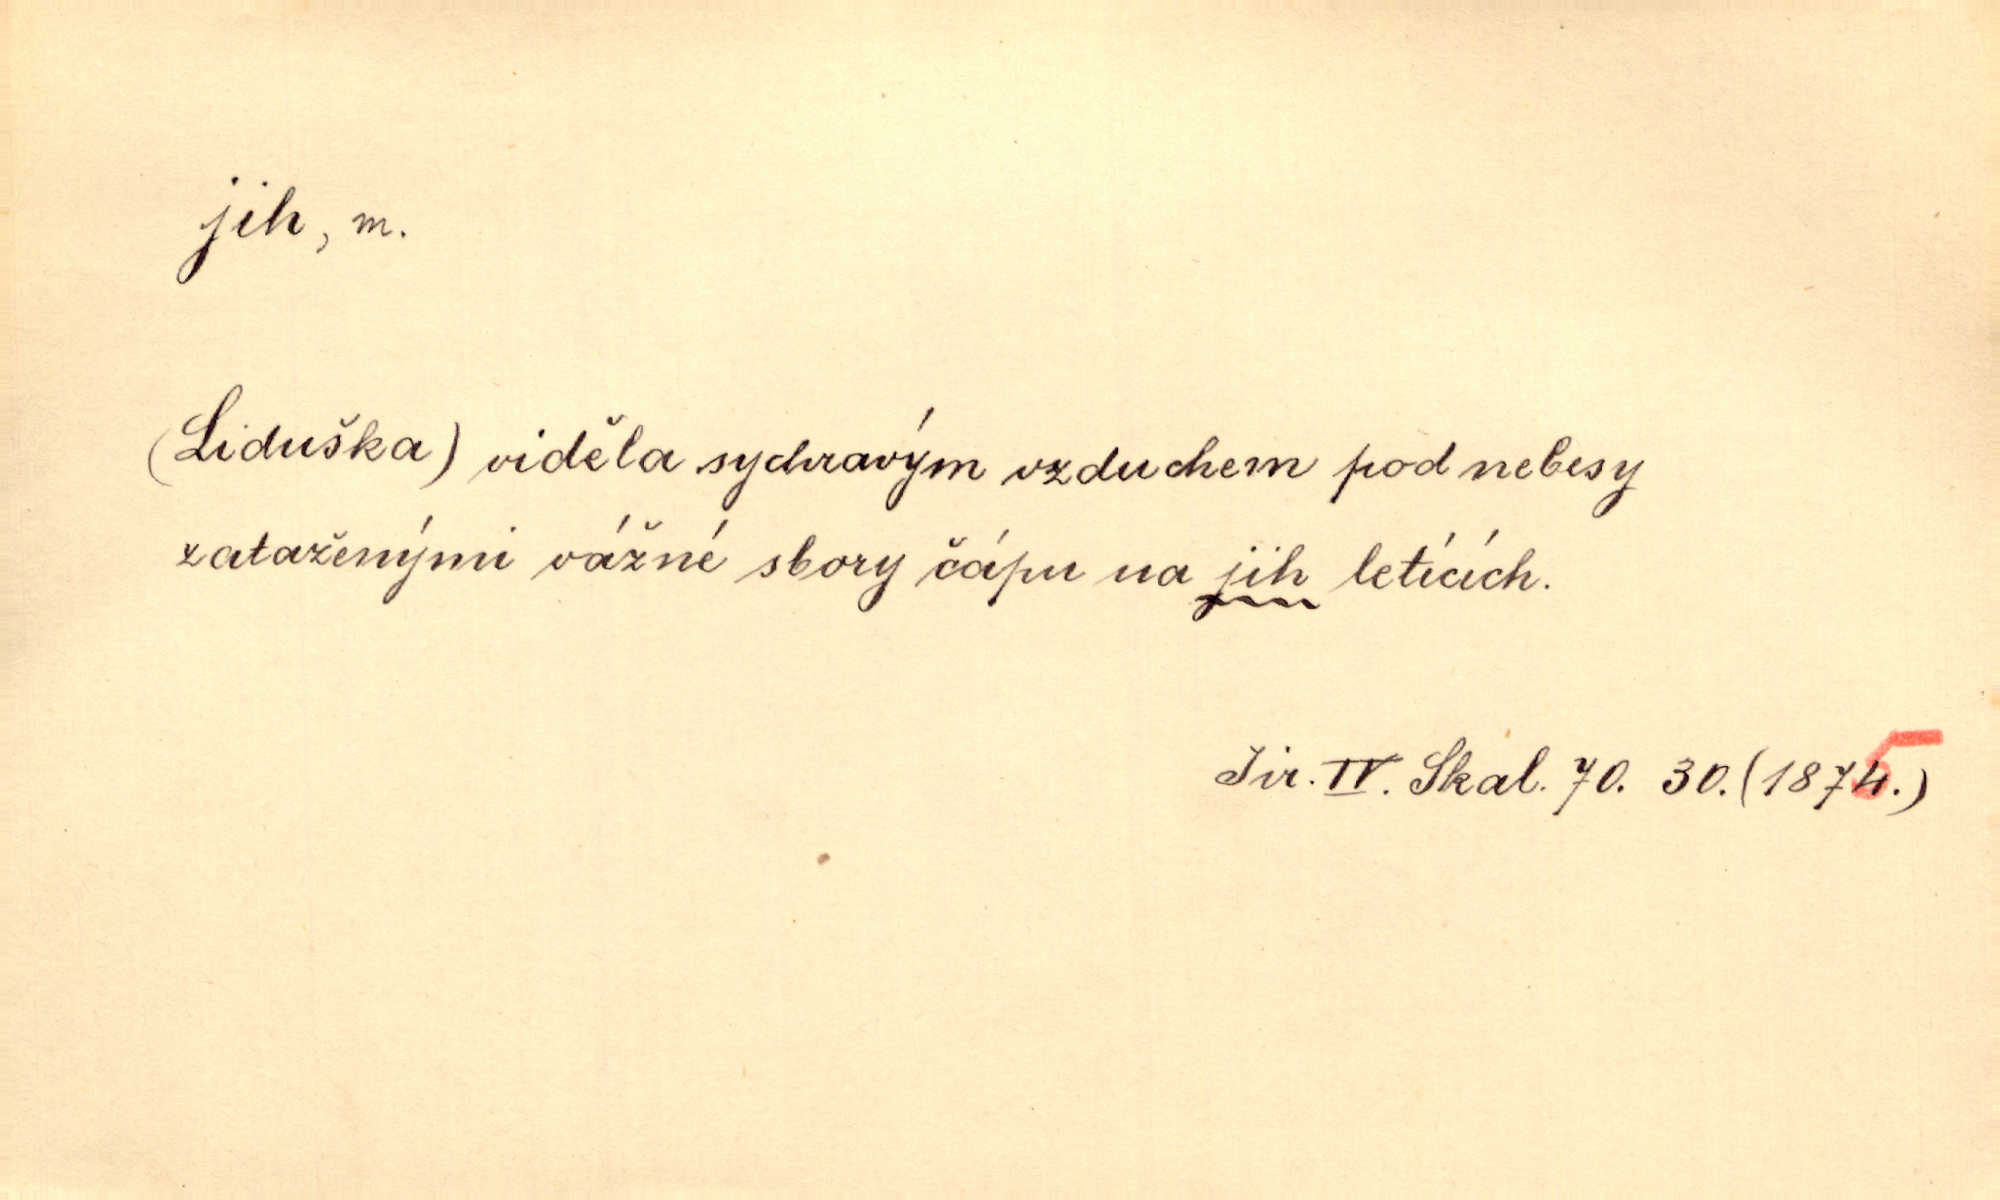 jih, m.
(Liduška) viděla sychravým vzduchem pod nebesy
zataženými vážné sbory čápu na jih letících.
Jir. IV. Skal. 70. 30. (1875.)